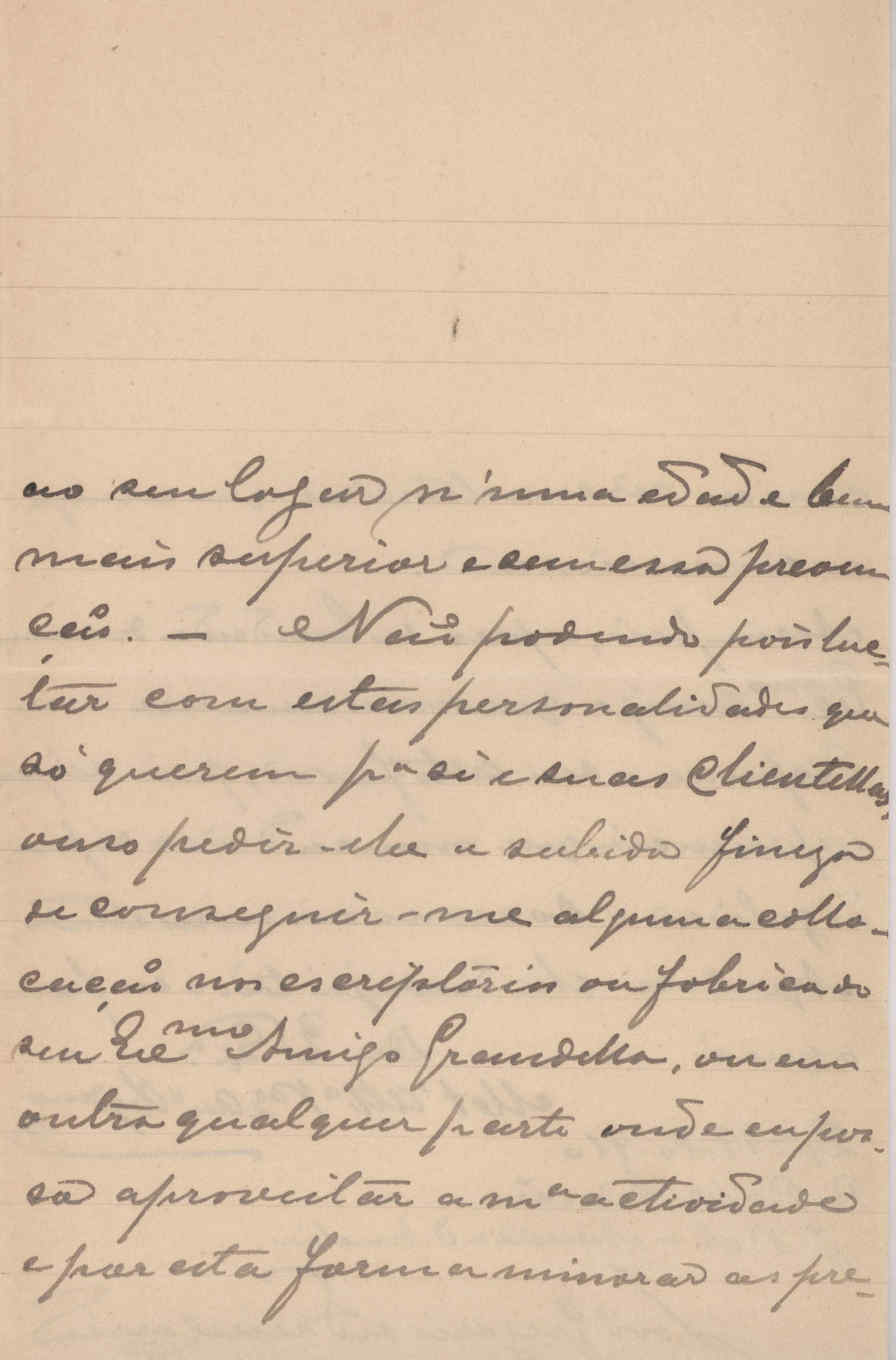 ao seu logar n'uma edade bem
mais superior e sem essa preoccu
ção. — Não podendo pois luc-
tar com estas personalidades que
só querem pª si e suas Clientellas,
ouso pedir-lhe a subida fineza
de conseguir-me alguma collo-
cação nos escriptorios ou fabrica do
seu Exmo Amigo Grandella, ou em
outra qualquer parte onde eu pos-
sa aproveitar a mª actividade
e por esta forma minorar as pre-